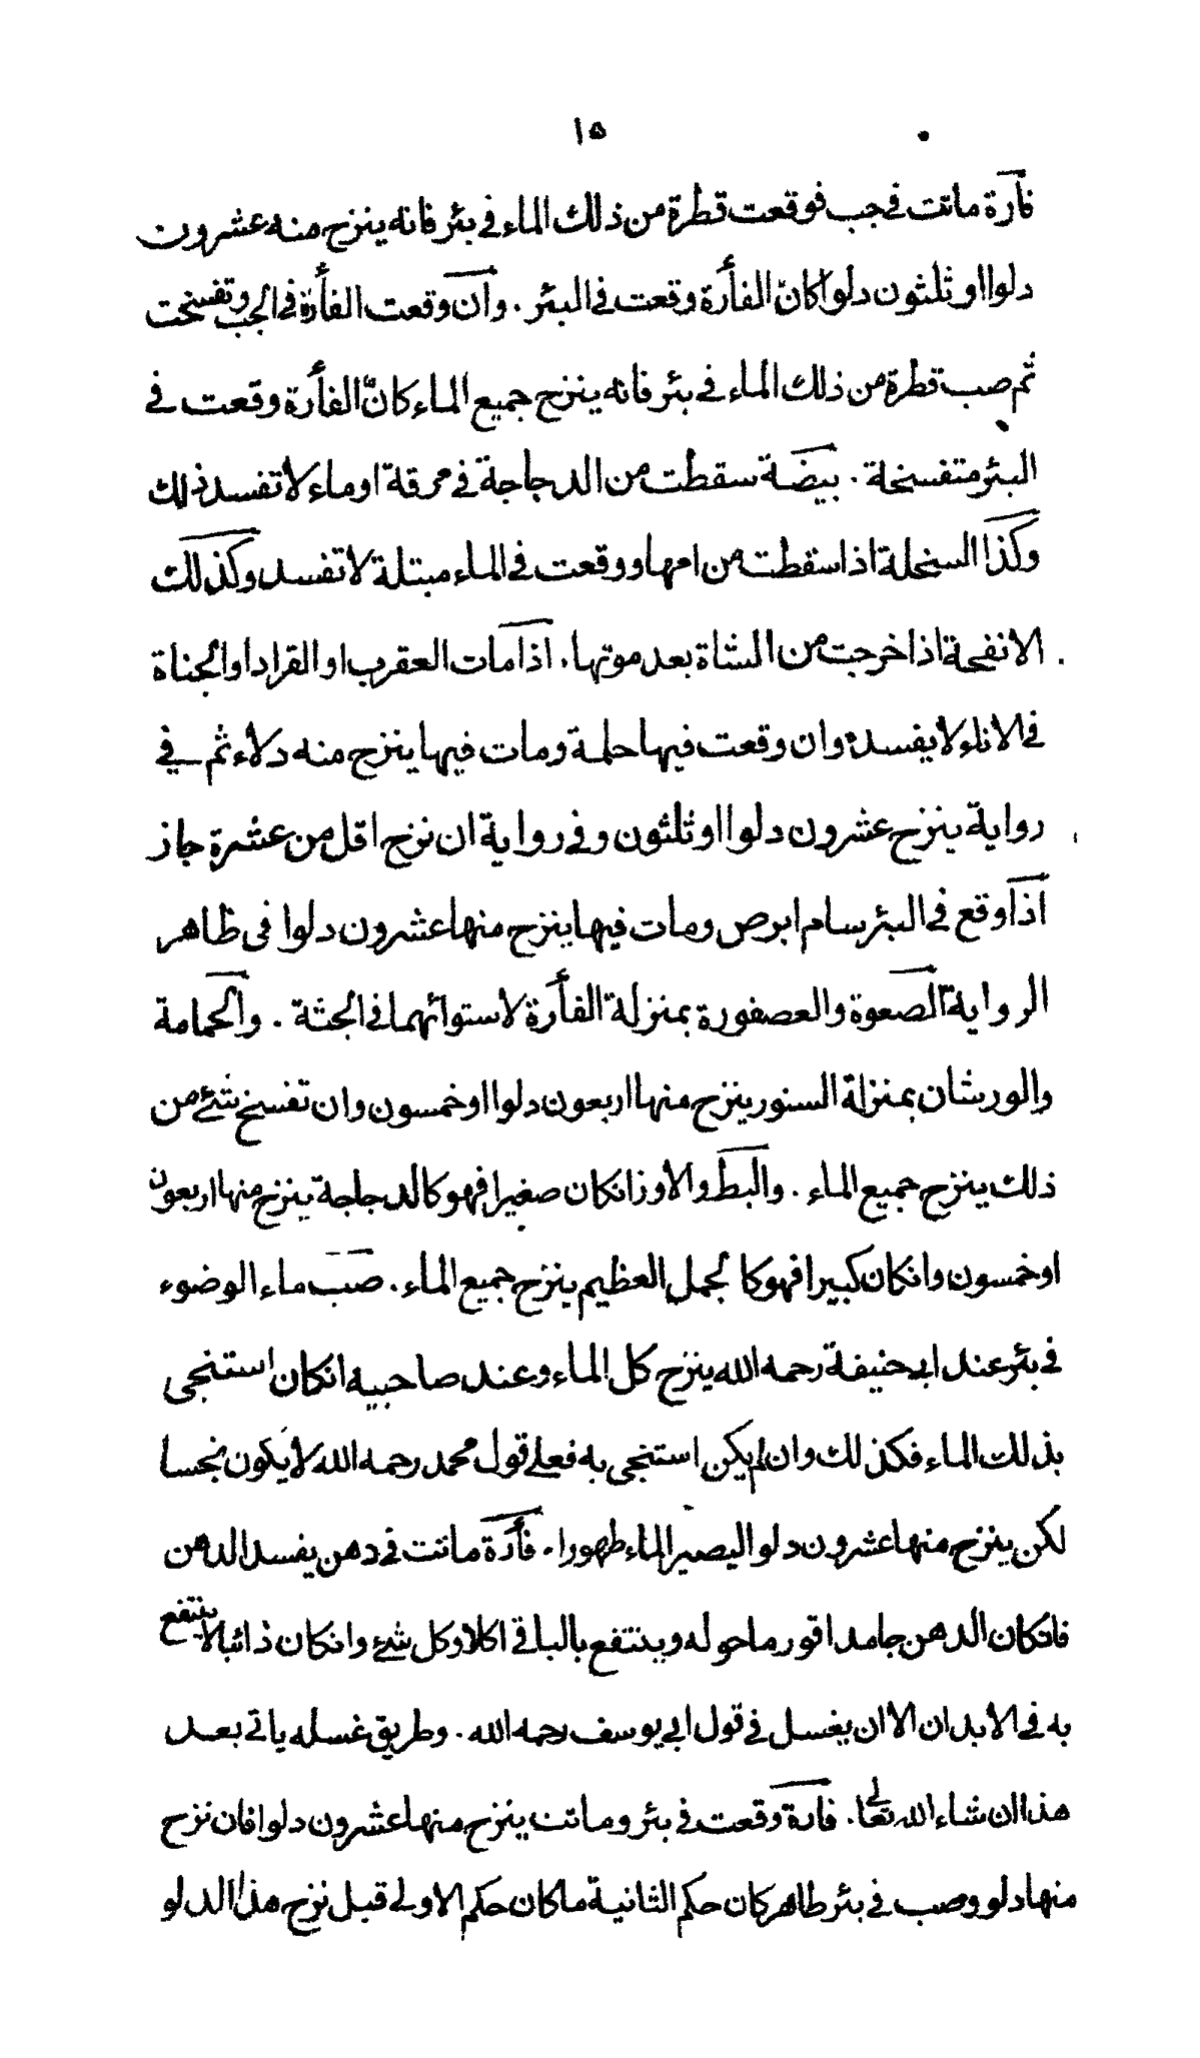 ١٥
فأرة ماتت في جب فوقعت قطرة من ذلك الماء في بئر فانه ينزح منه عشرون
دلوا او ثلثون دلوا كانّ الفأرة وقعت في البئر . وان وقعت الفأرة في الجب وتفسخت
ثم صب قطرة من ذلك الماء في بئر فانه ينزح جميع الماء كانّ الفأرة وقعت في
البئر متفسخة . بيضة سقطت من الدجاجة في مرقة او ماء لا تفسد ذلك
وكذا السخلة اذا سقطت من امها ووقعت في الماء مبتلة لا تفسد وكذلك
الانفحة اذا خرجت من الشاة بعد موتها . اذا مات العقرب او القراد او الجناة
في الاناء لا يفسده وان وقعت فيها حلمة ومات فيها ينزح منه دلاء ثم في
رواية ينزح عشرون دلوا او ثلثون وفي رواية ان نزح اقل من عشرة جاز
اذا وقع في البئر سام ابرص ومات فيها ينزح منها عشرون دلوا فى ظاهر
الرواية الصعوة والعصفورة بمنزلة الفأرة لاستوائهما في الجثة . والحمامة
والورشان بمنزلة السنور ينزح منها اربعون دلوا او خمسون وان تفسخ شئ من
ذلك ينزح جميع الماء . والبط والاوز انكان صغيرا فهو كالدجاجة ينزح منها اربعون
او خمسون وانكان كبيرا فهو كا لجمل العظيم ينزح جميع الماء . صب ماء الوضوء
في بئر عند ابي حنيفة رحمه الله ينزح كل الماء وعند صاحبيه انكان استنجى
بذلك الماء فكذلك وان لم يكن استنجى به فعلى قول محمد رحمه الله لا يكون نجسا
لكن ينزح منها عشرون دلوا ليصير الماء طهورا . فأرة ماتت في دهن يفسد الدهن
فانكان الدهن جامدا قور ما حوله وينتفع بالباقي اكلا وكل شئ وانكان ذائبا لا ينتفع
به في الابدان الا ان يغسل في قول ابي يوسف رحمه الله . وطريق غسله ياتي بعد
هذا ان شاء الله تعالى . فارة وقعت في بئر وماتت ينزح منها عشرون دلوا فان نزح
منها دلو وصب في بئر طاهر كان حكم الثانية ما كان حكم الاولى قبل نزح هذا الدلو